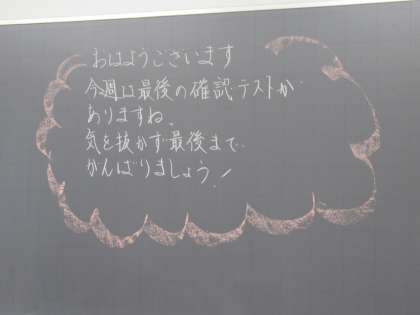 おはようございます
今週は最後の確認テストが
ありますね。
気を抜かず最後まで
がんばりましょう！